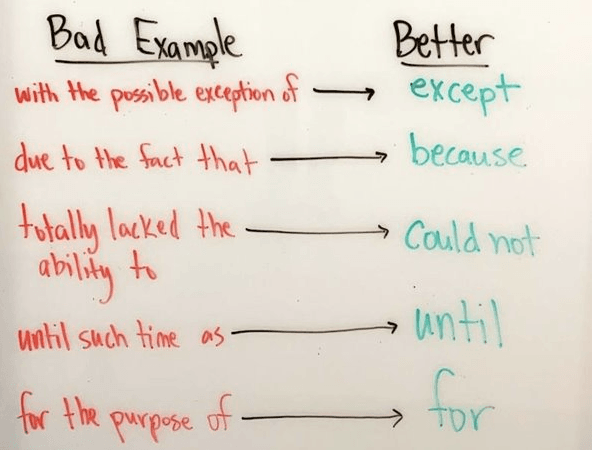 Bad Example Better
with the possible exception of except
due to the fact that because
totally lacked the
ability to Could not
until such time as until
for the purpose of for